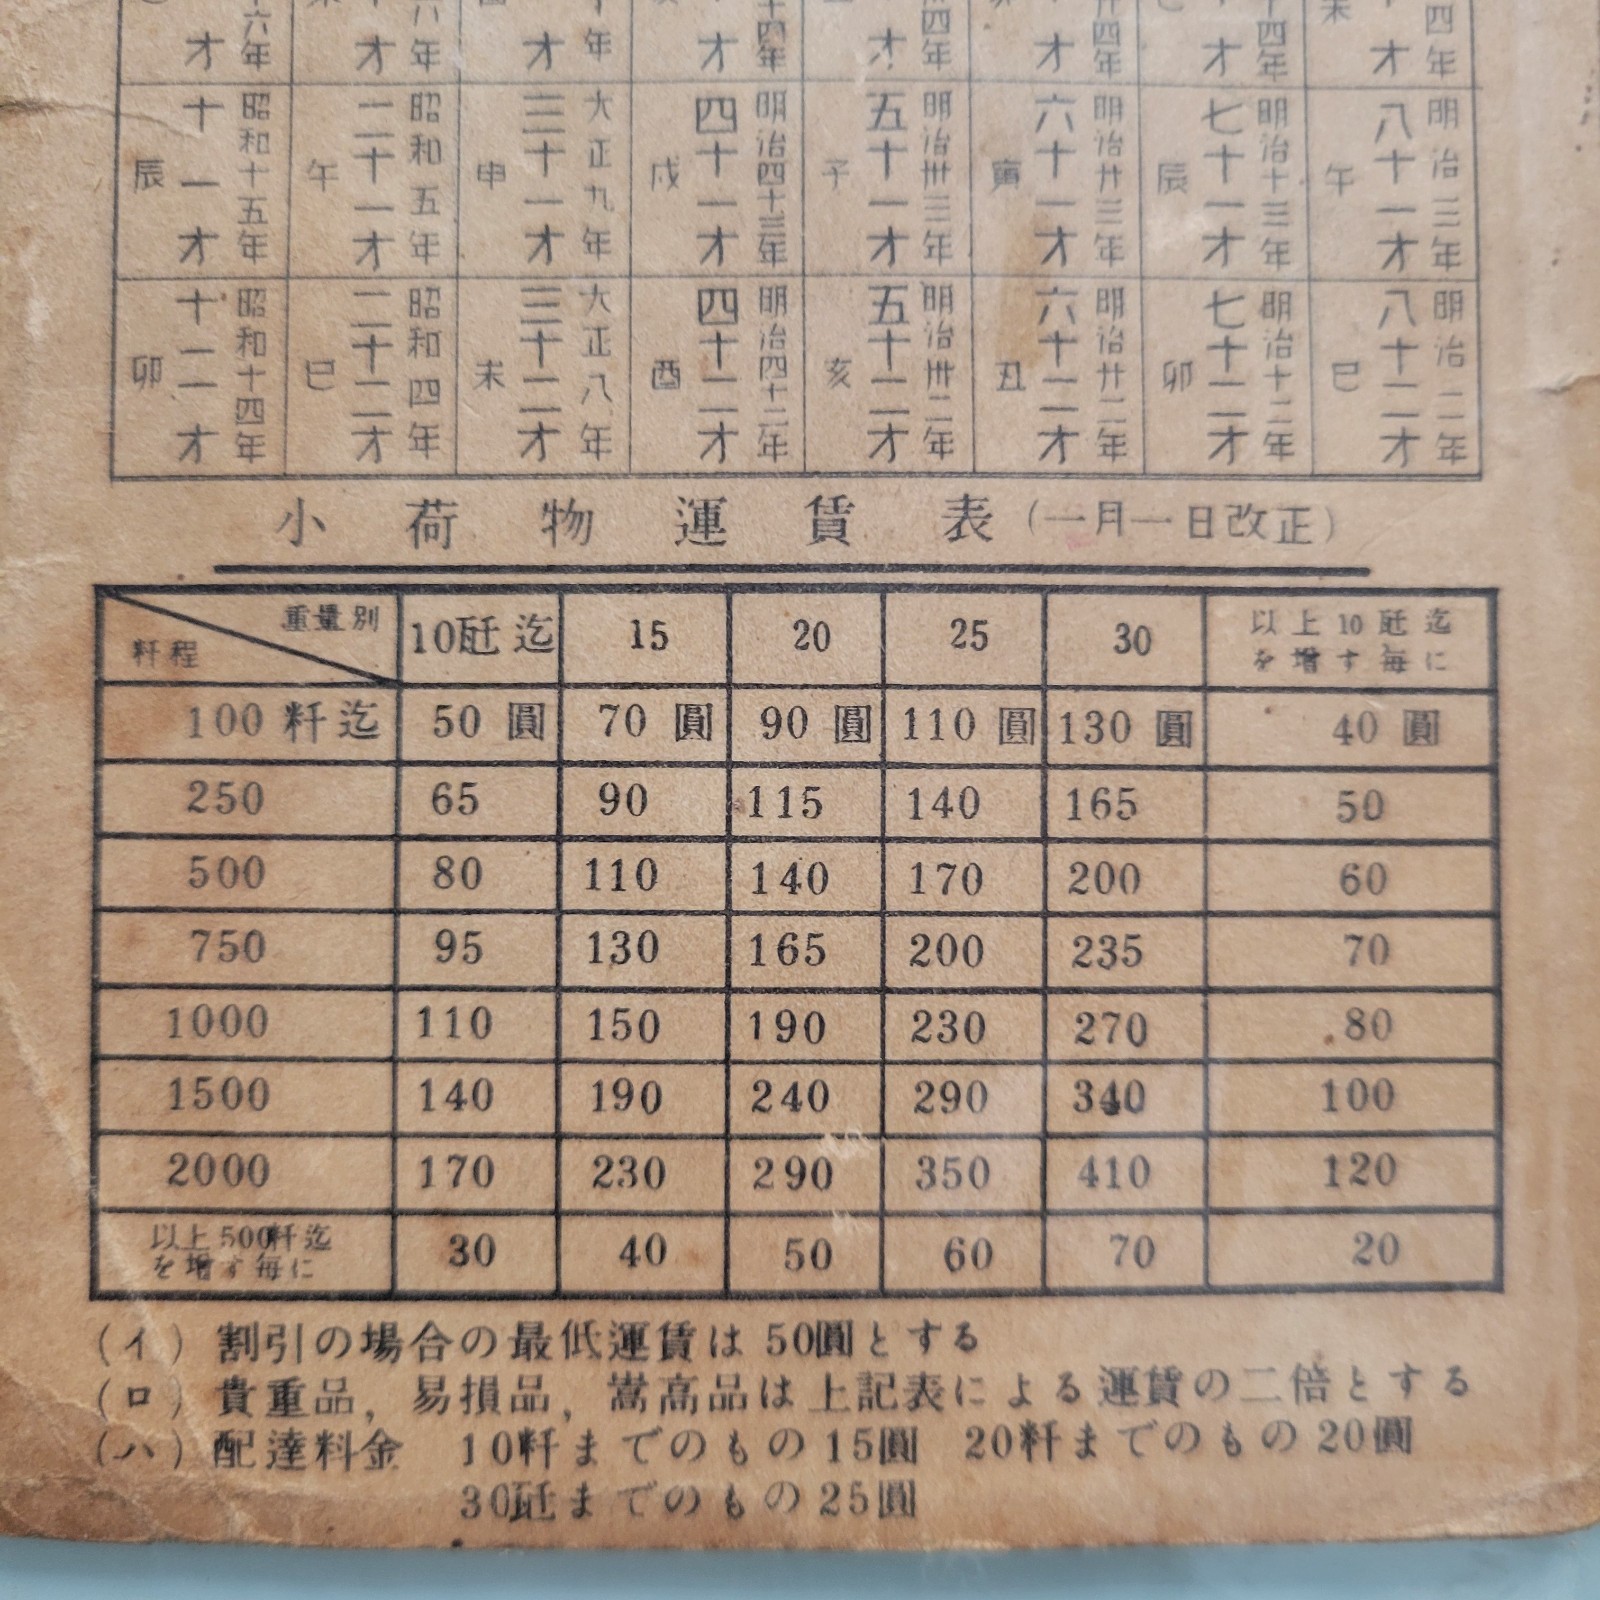 四年 才 未
十四年 才
廿四年 才
卅四年 才
十四年 才
十年 才
六年 才
十六年 才
明治三年 八十一才 午
明治十三年 七十一才 辰
明治廿三年 六十一才 寅
明治卅三年 五十一才 子
明治四十三年 四十一才 戌
大正九年 三十一才 申
昭和五年 二十一才 午
昭和十五年 十一才 辰
明治二年 八十二才 巳
明治十二年 七十二才 卯
明治廿二年 六十二才 丑
明治卅二年 五十二才 亥
明治四十二年 四十二才 酉
大正八年 三十二才 未
昭和四年 二十二才 巳
昭和十四年 十二才 卯
小荷物運賃表(一月一日改正)
重量別 粁程 10瓩迄 15 20 25 30 以上10瓩迄を増す毎に
100粁迄 50圓 70圓 90圓 110圓 130圓 40圓
250 65 90 115 140 165 50
500 80 110 140 170 200 60
750 95 130 165 200 235 70
1000 110 150 190 230 270 80
1500 140 190 240 290 340 100
2000 170 230 290 350 410 120
以上500粁迄を増す毎に 30 40 50 60 70 20
(イ) 割引の場合の最低運賃は50圓とする
(ロ) 貴重品, 易損品, 嵩高品は上記表による運賃の二倍とする
(ハ) 配達料金 10粁までのもの15圓 20粁までのもの20圓
30瓩までのもの25圓